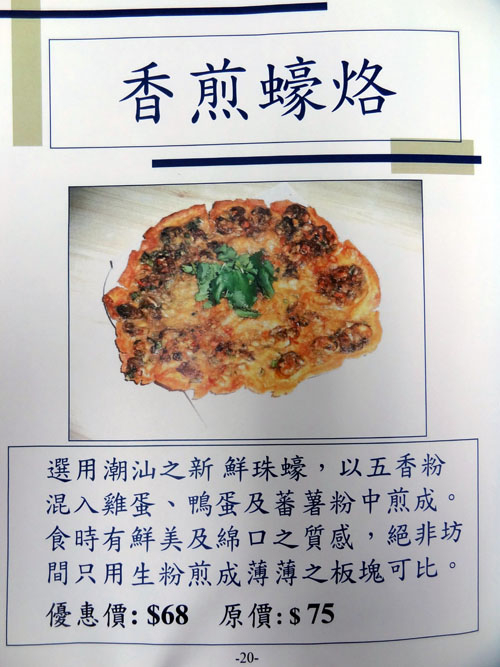 香煎蠔烙
選用潮汕之新鮮珠蠔，以五香粉
混入雞蛋、鴨蛋及蕃薯粉中煎成。
食時有鮮美及綿口之質感，絕非坊
間只用生粉煎成薄薄之板塊可比。
優惠價: $68 原價: $75
-20-